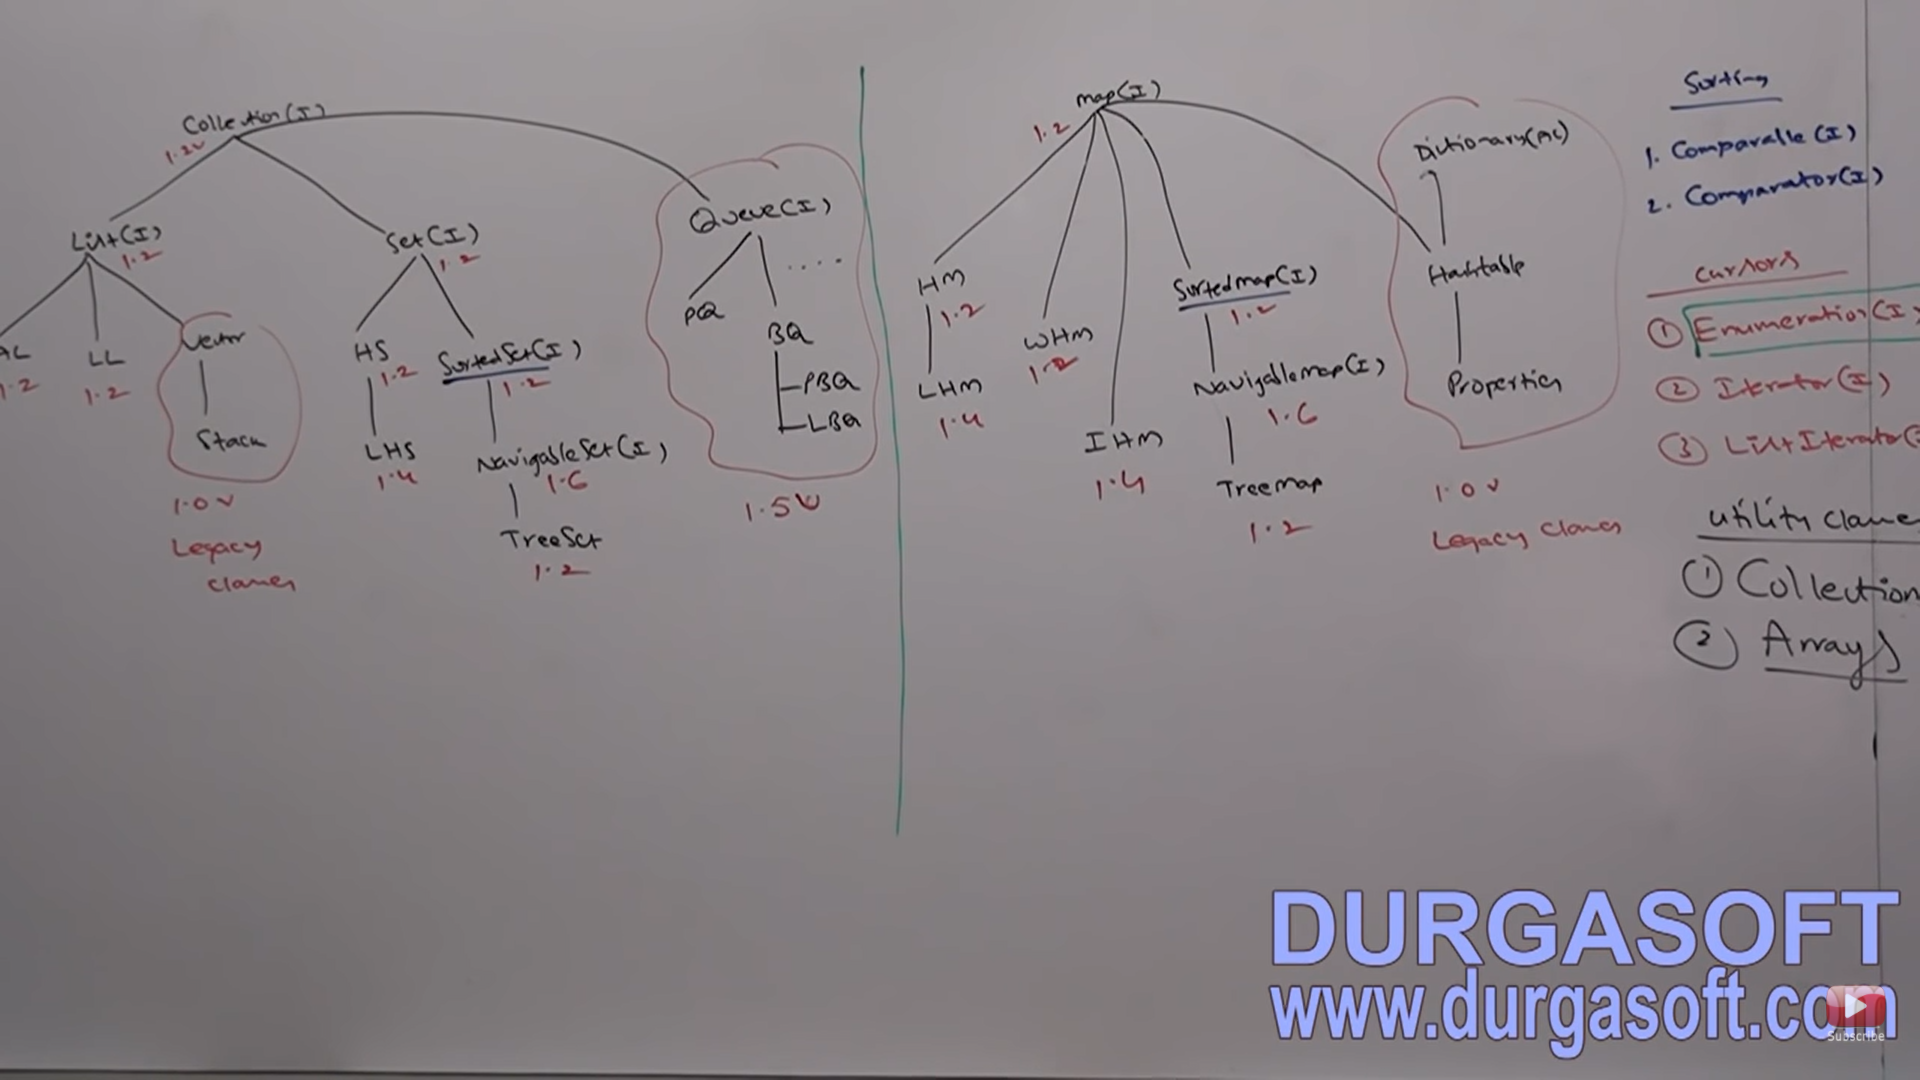 Collection(I)
1.2v
List(I)
1.2
AL
1.2
LL
1.2
Vector
Stack
1.0 v
Legacy
Classes
Set(I)
1.2
HS
1.2
LHS
1.4
SortedSet(I)
1.2
NavigableSet(I)
1.6
TreeSet
1.2
Queue(I)
....
PQ
BQ
PBQ
LBQ
1.5 V
map(I)
1.2
HM
1.2
LHM
1.4
WHM
1.2
IHM
1.4
Sortedmap(I)
1.2
Navigablemap(I)
1.6
Treemap
1.2
Dictionary(AC)
Hashtable
Properties
1.0 v
Legacy Classes
Sorting
1. Comparable (I)
2. Comparator(I)
Cursors
① Enumeration(I)
② Iterator(I)
③ ListIterator(I
utility classe
① Collection
② Arrays
DURGASOFT
www.durgasoft.com
Subscribe